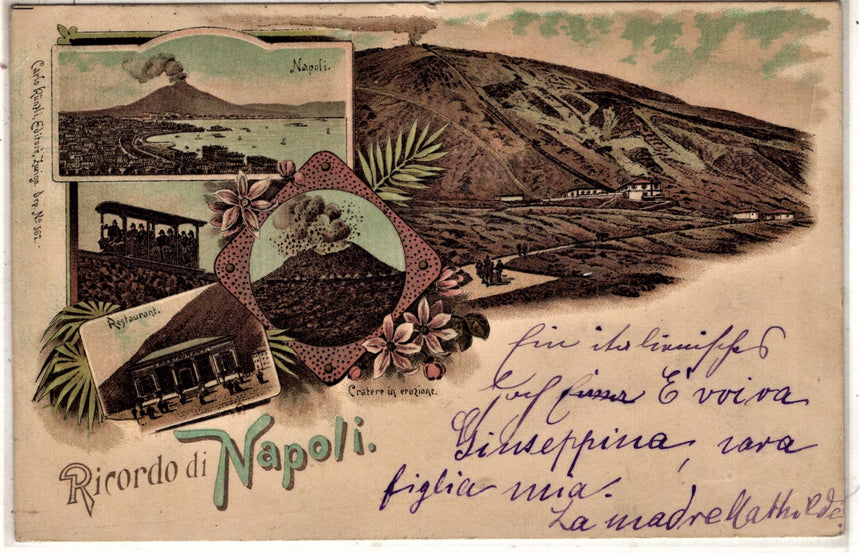 Napoli.
Carlo Künzli, Editore, Zurigo. Dep. No. 562.
Restaurant.
Cratere in eruzione.
Ricordo di Napoli.
Ein italienisches
Hoch E voiva
Giuseppina, cara
figlia mia.
La madre Mathilde.